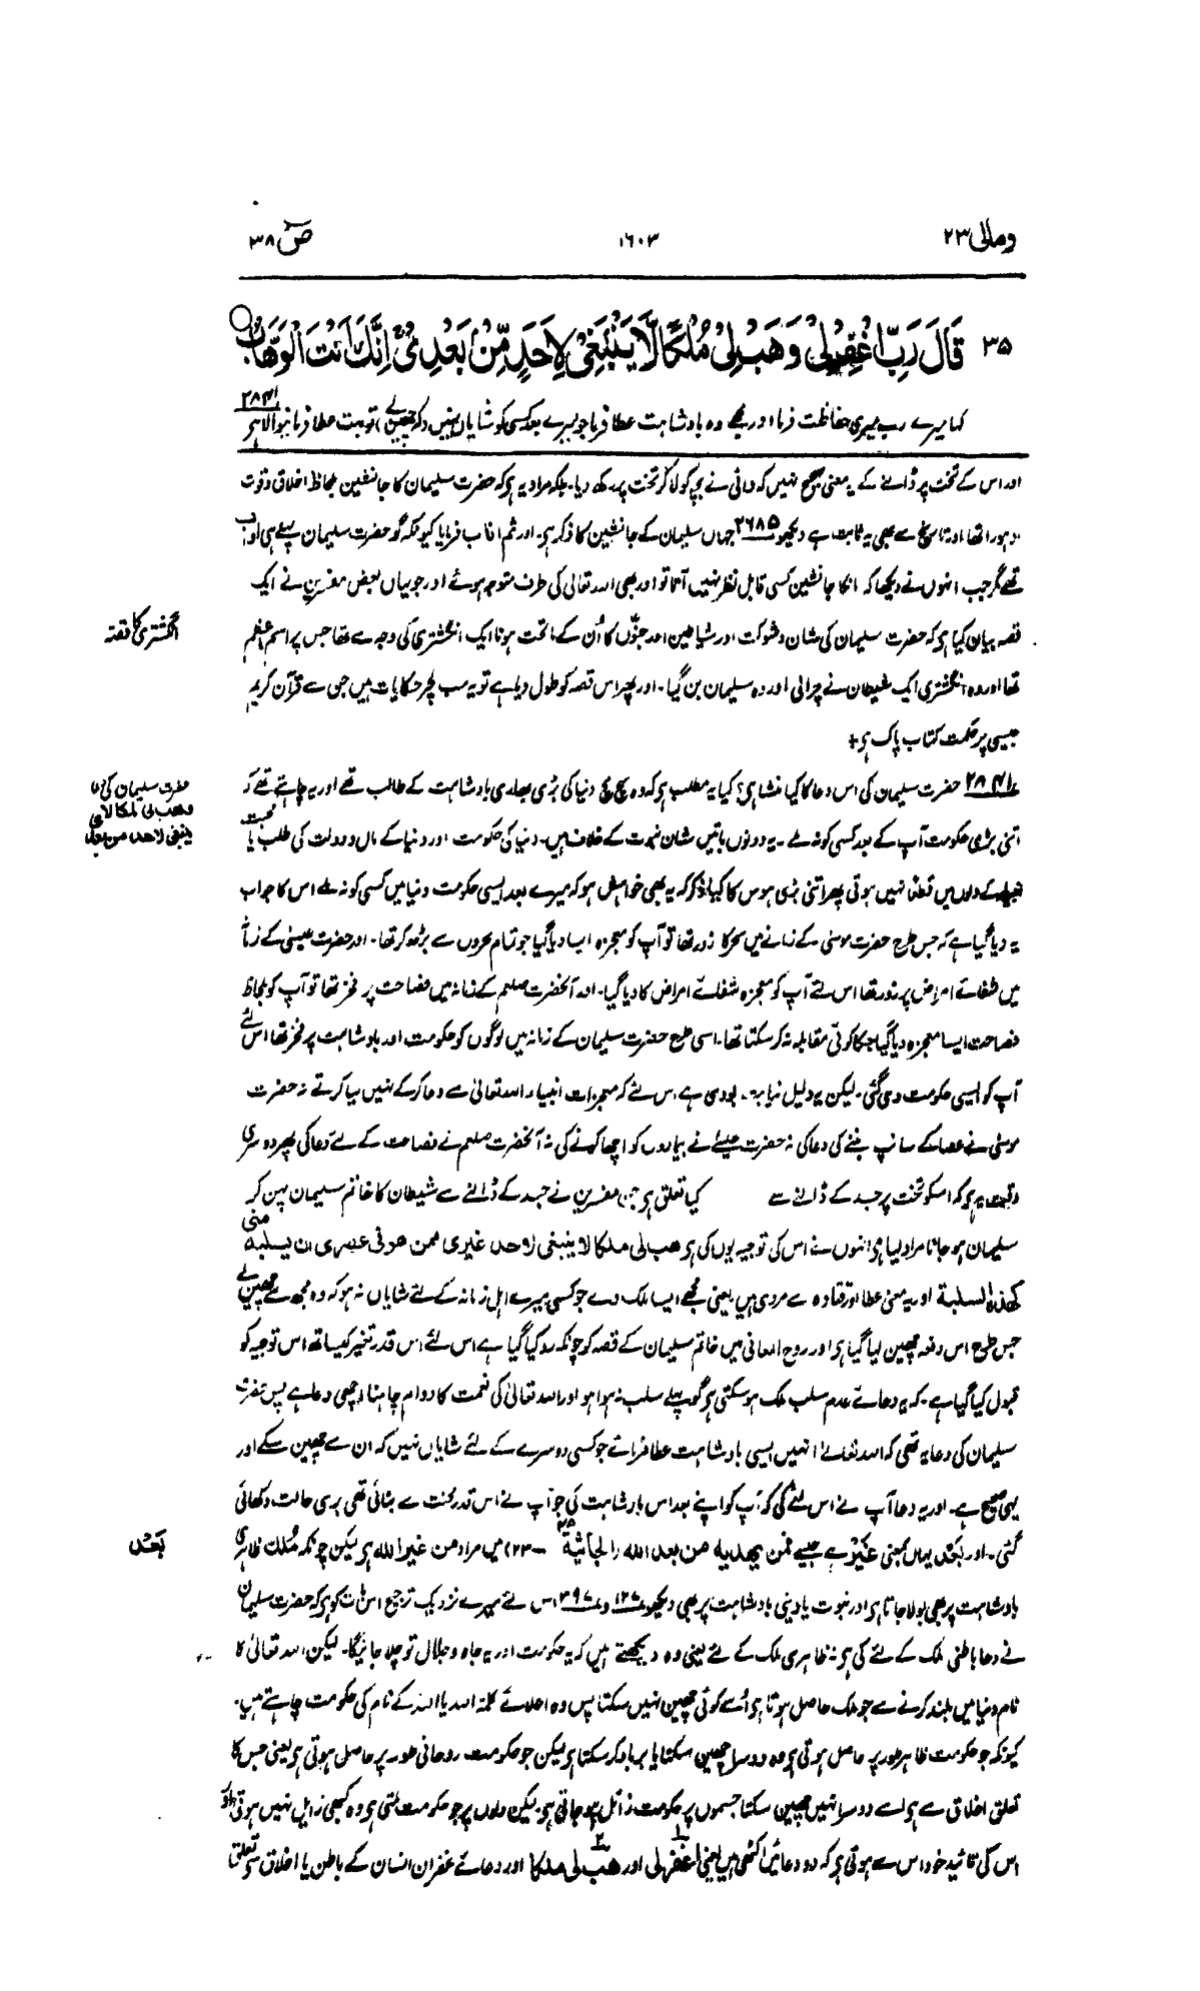 ومالی ۲۳
۱۶۰۳
صٓ ۳۸
۳۵ قَالَ رَبِّ اغْفِرْ لِیْ وَهَبْ لِیْ مُلْکًا لَّا یَنْۢبَغِیْ لِاَحَدٍ مِّنْۢ بَعْدِیْ ۚ اِنَّکَ اَنْتَ الْوَهَّابُ
کہا میرے رب میری حفاظت فرما اور مجھے وہ بادشاہت عطا فرما جو میرے بعد کسی کو شایاں نہیں (کہ چھین لے) تو بہت عطا فرمانیوالا ہر ۲۸۴۱
اور اس کے تخت پر ڈالنے کے یہ معنی صحیح نہیں کہ دائی نے بچہ کو لا کر تخت پر رکھ دیا۔ بلکہ مراد یہ ہر کہ حضرت سلیمان کا جانشین بلحاظ اخلاق وقوت
تھا اور تاریخ سے بھی یہ ثابت ہے دیکھو ۲۶۸۵ جہاں سلیمان کے جانشین کا ذکر ہر۔ اور ثم اناب فرمایا کیونکہ گو حضرت سلیمان پہلے ہی اواب
تھے مگر جب انہوں نے دیکھا کہ انکا جانشین کسی قابل نظر نہیں آتا تو اور بھی اللہ تعالی کی طرف متوجہ ہوئے اور جو یہاں بعض مفسرین نے ایک
قصہ بیان کیا ہر کہ حضرت سلیمان کی شان وشوکت اور شیاطین اور جنّوں کا اُن کے ماتحت ہونا ایک انگشتری کی وجہ سے تھا جس پر اسم اعظم
انگشتری کا قصہ
تھا اور وہ انگشتری ایک شیطان نے چرالی اور وہ سلیمان بن گیا۔ اور پھر اس قصہ کو طول دیا ہے تو یہ سب لچر حکایات ہیں جن سے قرآن کریم
جیسی پر حکمت کتاب پاک ہر +
۲۸۴۱ حضرت سلیمان کی اس دعا کا کیا منشا ہر؟ کیا یہ مطلب ہر کہ وہ سچ مچ دنیا کی بڑی بھاری بادشاہت کے طالب تھے اور یہ چاہتے تھے کہ
حضرت سلیمان کی دعا
وهب لی ملکا لا
ینبغی لاحد من بعدی
اتنی بڑی حکومت آپ کے بعد کسی کو نہ ملے۔ یہ دونوں باتیں شان نبوت کے خلاف ہیں۔ دنیا کی حکومت اور دنیا کے مال و دولت کی طلب یا محبت
انبیاء کے دلوں میں قطعاً نہیں ہوتی پھر اتنی بڑی ہوس کا کیا ذکر کہ یہ بھی خواہش ہو کہ میرے بعد ایسی حکومت دنیا میں کسی کو نہ ملے اس کا جواب
یہ دیا گیا ہے کہ جس طرح حضرت موسٰی کے زمانے میں سحر کا زور تھا تو آپ کو معجزہ ایسا دیا گیا جو تمام سحروں سے بڑھ کر تھا۔ اور حضرت عیسٰی کے زمانہ
میں شفائے امراض پر زور تھا اس لئے آپ کو معجزہ شفائے امراض کا دیا گیا۔ اور آنحضرت صلعم کے زمانہ میں فصاحت پر فخر تھا تو آپ کو بلحاظ
فصاحت ایسا معجزہ دیا گیا جسکا کوئی مقابلہ نہ کر سکتا تھا۔ اسی طرح حضرت سلیمان کے زمانہ میں لوگوں کو حکومت اور بادشاہت پر فخر تھا اس لئے
آپ کو ایسی حکومت دی گئی۔ لیکن یہ دلیل بودی ہے اس لئے کہ معجزات انبیاء اللہ تعالٰی سے دعا کرکے نہیں لیا کرتے نہ حضرت
موسٰی نے عصا کے سانپ بننے کی دعا کی نہ حضرت عیسٰے نے بیماروں کو اچھا کرنے کی نہ آنحضرت صلعم نے فصاحت کے لئے دعا کی پھر دوسری
دقت یہ ہر کہ اسکو تخت پر جسد کے ڈالنے سے کیا تعلق ہر جن مفسرین نے جسد کے ڈالنے سے شیطان کا خاتم سلیمان پہن کر
سلیمان ہو جانا مراد لیا ہر انہوں نے اس کی توجیہ یوں کی ہر هب لی ملکا لا ینبغی لاحد غیری ممن هو فی عصری ان یسلبه منی
کهذه السلبة اور یہ معنی عطا اور قتادہ سے مروی ہیں یعنی مجھے ایسا ملک دے جو کسی میرے اہل زمانہ کے لئے شایاں نہ ہو کہ وہ مجھ سے چھین لے
جس طرح اس دفعہ چھین لیا گیا ہر اور روح المعانی میں خاتم سلیمان کے قصہ کو چونکہ رد کیا گیا ہے اس لئے اس قدر تغیر کیساتھ اس توجیہ کو
قبول کیا گیا ہے۔ کہ یہ دعائے عدم سلب ملک ہو سکتی ہر گو پہلے سلب نہ ہوا ہو اور اللہ تعالیٰ کی نعمت کا دوام چاہنا اچھی دعا ہے پس حضرت
سلیمان کی دعا یہ تھی کہ اللہ تعالےٰ انہیں ایسی بادشاہت عطا فرمائے جو کسی دوسرے کے لئے شایاں نہیں کہ ان سے چھین سکے اور
یہی صحیح ہے۔ اور یہ دعا آپ نے اس لئے کی کہ آپ کو اپنے بعد اس بادشاہت کی جو آپ نے اس قدر محنت سے بنائی تھی بری حالت دکھائی
گئی۔ اور بَعْد یہاں بمعنی غَیر ہے جیسے فمن یهدیه من بعد الله (الجاثیة ۴۵-۲۳) میں مراد من غیر الله ہر لیکن چونکہ مُلک ظاہری
بَعْد
بادشاہت پر بھی بولا جاتا ہر اور نبوت یا دینی بادشاہت پر بھی دیکھو اس لئے میرے نزدیک ترجیح اس بات کو ہر کہ حضرت سلیمان
نے دعا باطنی ملک کے لئے کی ہر نہ ظاہری ملک کے لئے یعنی وہ دیکھتے ہیں کہ یہ حکومت اور یہ جاہ و جلال تو چلا جائیگا۔ لیکن اللہ تعالیٰ کا
نام دنیا میں بلند کرنے سے جو ملک حاصل ہوتا ہر اُسے کوئی چھین نہیں سکتا پس وہ اعلائے کلمۃ اللہ یا اللہ کے نام کی حکومت چاہتے ہیں۔
کیونکہ جو حکومت ظاہر طور پر حاصل ہوتی ہر وہ دوسرا چھین سکتا یا برباد کر سکتا ہر لیکن جو حکومت روحانی طور پر حاصل ہوتی ہر یعنی جس کا
تعلق اخلاق سے ہر اسے دوسرا نہیں چھین سکتا جسموں پر حکومت زائل ہو جاتی ہر۔ لیکن دلوں پر جو حکومت ملتی ہر وہ کبھی زایل نہیں ہوتی اور
اس کی تائید خود اس سے ہوتی ہر کہ دو دعائیں اکٹھی ہیں یعنی اغفر لی اور هب لی ملکا اور دعائے غفران انسان کے باطن یا اخلاق سے تعلق